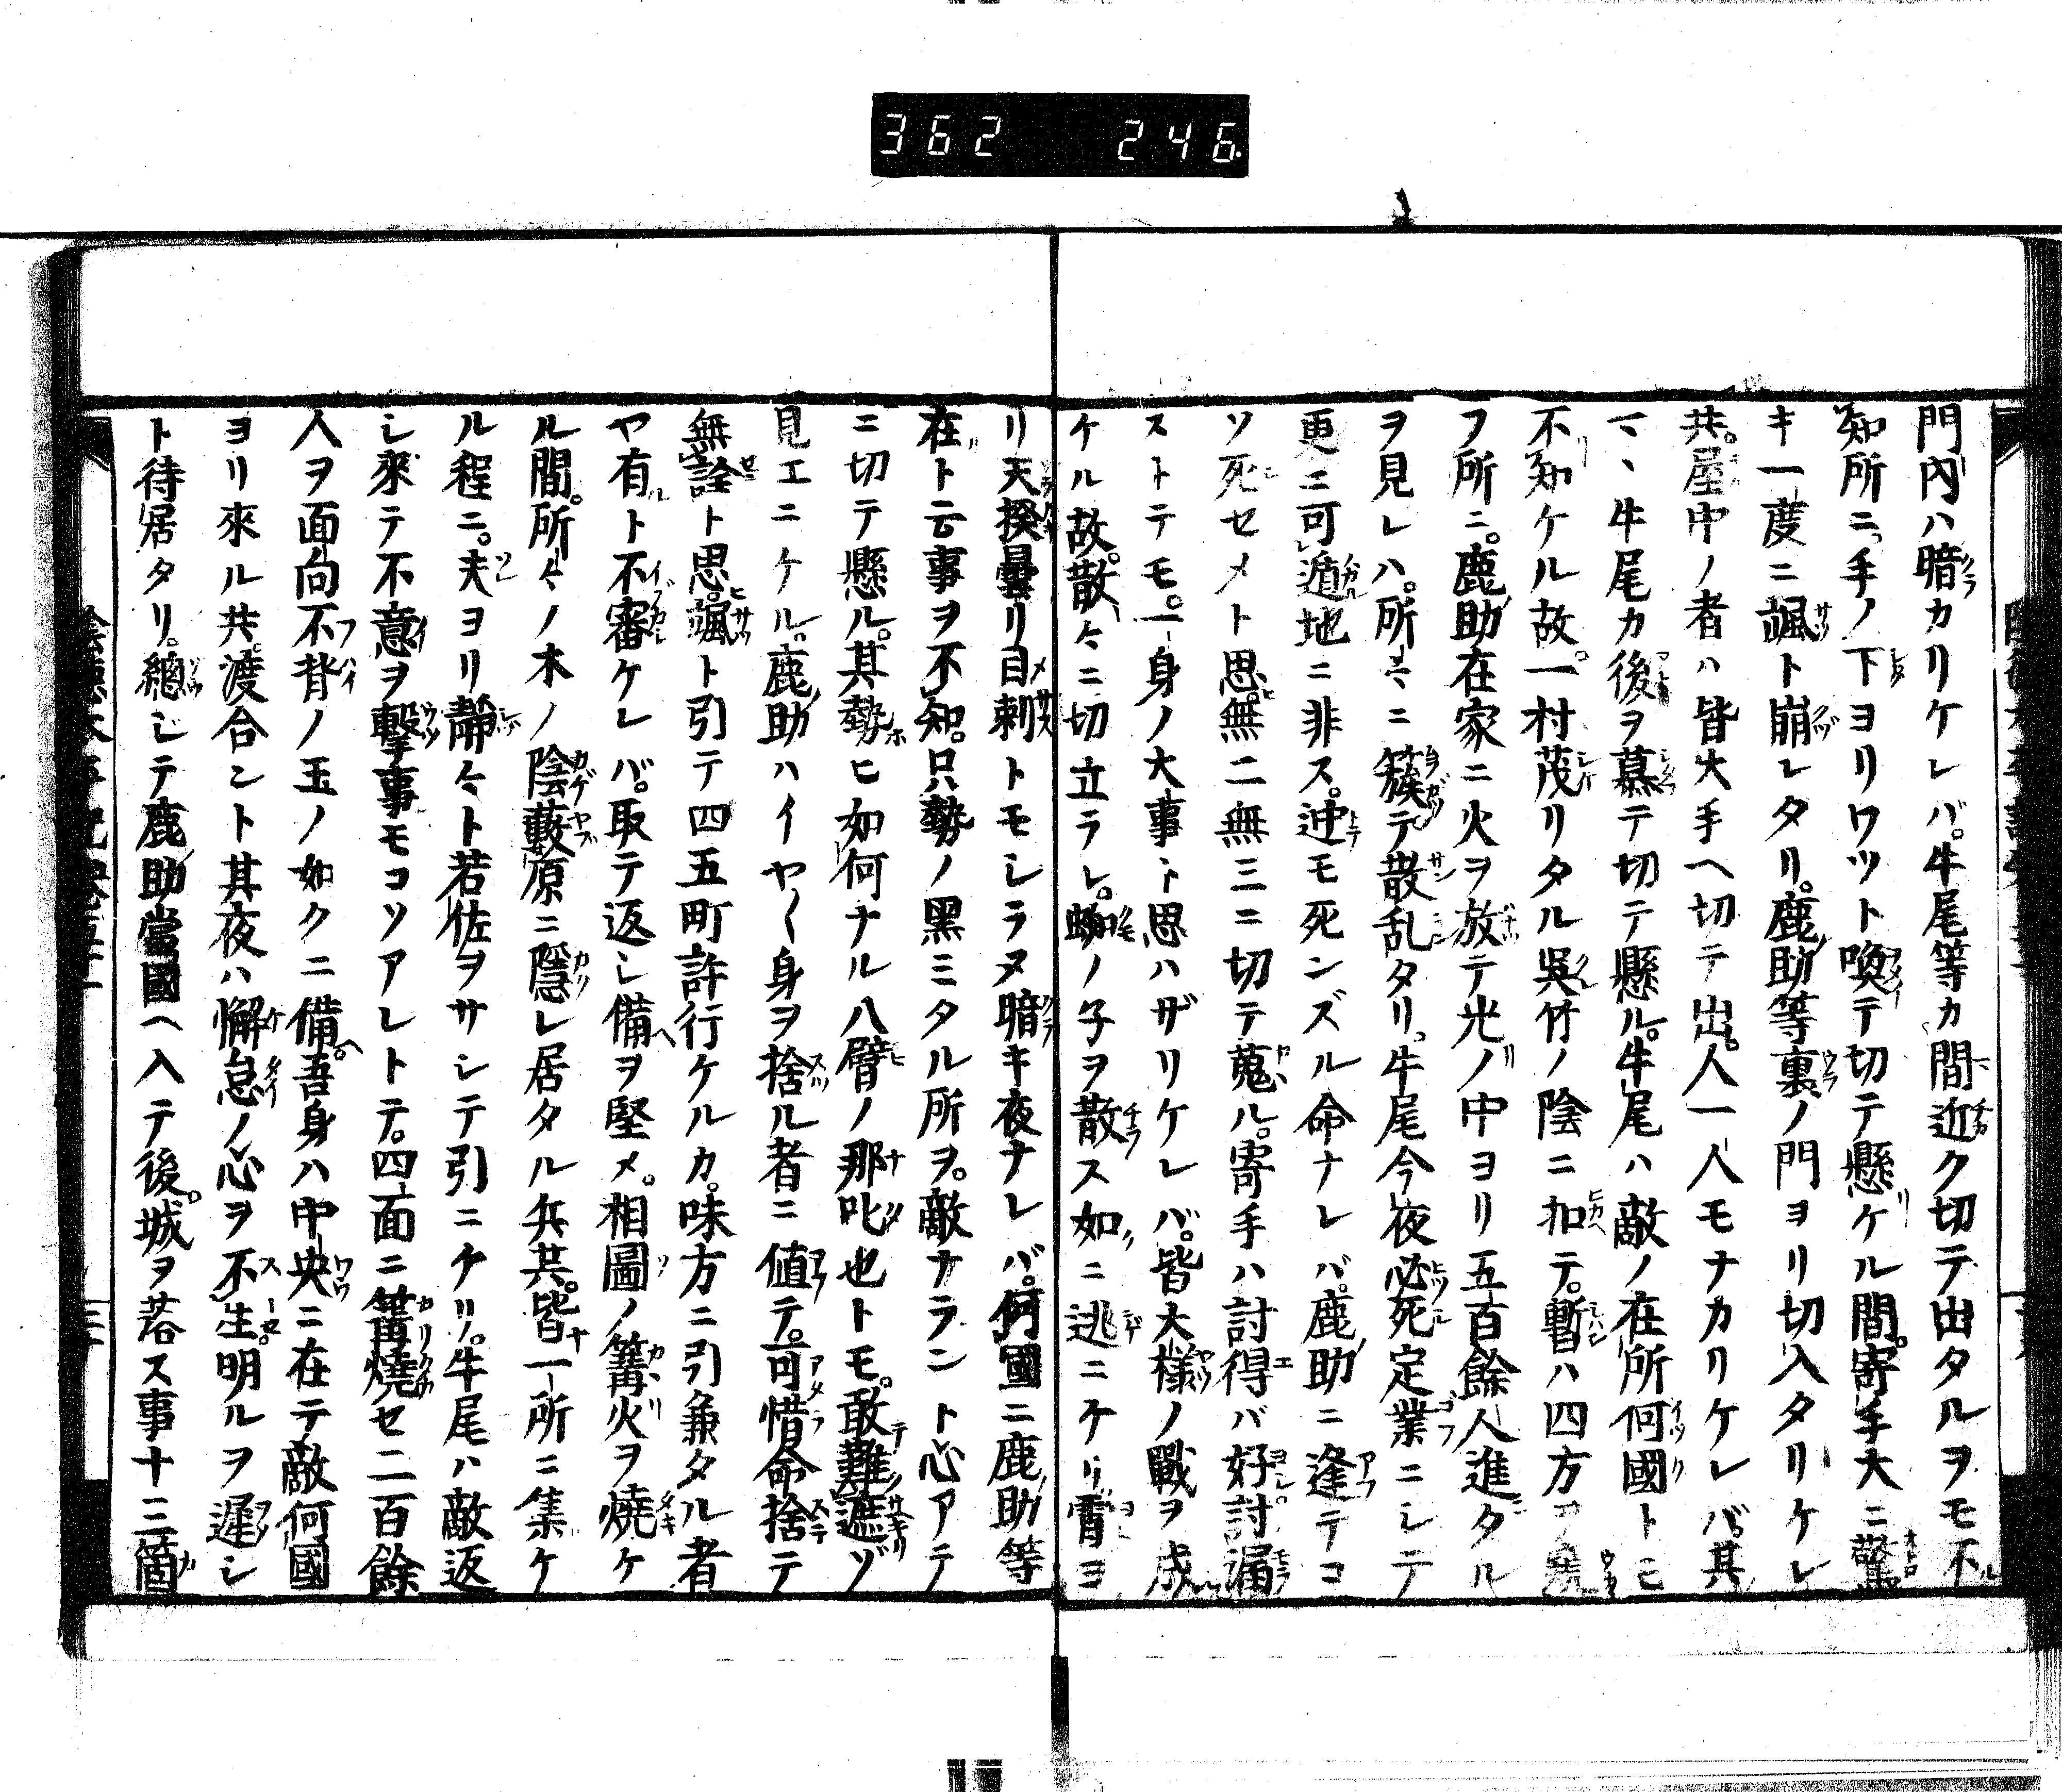 362 246
門内ハ暗カリケレバ。牛尾等カ間近ク切テ出タルヲモ不
知所ニ。手ノ下ヨリワツト喚テ切テ懸ケル間。寄手大ニ驚
キ一度ニ颯ト崩レタリ。鹿助等裏ノ門ヨリ切入タリケレ
共。屋中ノ者ハ皆大手ヘ切テ出。人一人モナカリケレバ。其
マヽ牛尾カ後ヲ慕テ切テ懸ル。牛尾ハ敵ノ在所何國トモ
不知ケル故。一村茂リタル呉竹ノ陰ニ扣テ。暫ハ四方
フ所ニ。鹿助在家ニ火ヲ放テ光ノ中ヨリ五百餘人進タル
ヲ見レハ。所々ニ簇テ散乱タリ。牛尾今夜必死定業ニシテ
更ニ可遁地ニ非ス。迚モ死ンズル命ナレバ。鹿助ニ逢テコ
ソ死セメト思。無二無三ニ切テ蒐ル。寄手ハ討得バ好討漏
ストテモ。一身ノ大事ト思ハザリケレバ。皆大様ノ戰ヲ成
ケル故。散々ニ切立ラレ。蜘ノ子ヲ散ス如ニ逃ニケリ。霄ヨ
リ天揆曇リ目刺トモシラヌ暗キ夜ナレバ。何國ニ鹿助等
在ト云事ヲ不知。只勢ノ黒ミタル所ヲ。敵ナラント心アテ
ニ切テ懸ル。其勢ヒ如何ナル八臂ノ那吒也トモ。敢難遮ゾ
見エニケル。鹿助ハイヤ〳〵身ヲ捨ル者ニ値テ。可惜命捨テ
無詮ト思。颯ト引テ四五町許行ケルカ。味方ニ引兼タル者
ヤ有ト不審ケレバ。取テ返シ備ヲ堅メ。相圖ノ篝火ヲ燒ケ
ル間。所々ノ木ノ陰藪原ニ隱レ居タル兵共。皆一所ニ集ケ
ル程ニ。夫ヨリ静々ト若佐ヲサシテ引ニケリ。牛尾ハ敵返
シ來テ不意ヲ撃事モコソアレトテ。四面ニ篝燒セ二百餘
人ヲ面向不背ノ玉ノ如クニ備ヘ。吾身ハ中央ニ在テ敵何國
ヨリ來ル共。渡合ント其夜ハ懈怠ノ心ヲ不生。明ルヲ遲シ
ト待居タリ。總シテ鹿助當國ヘ入テ後。城ヲ落ス事十三箇